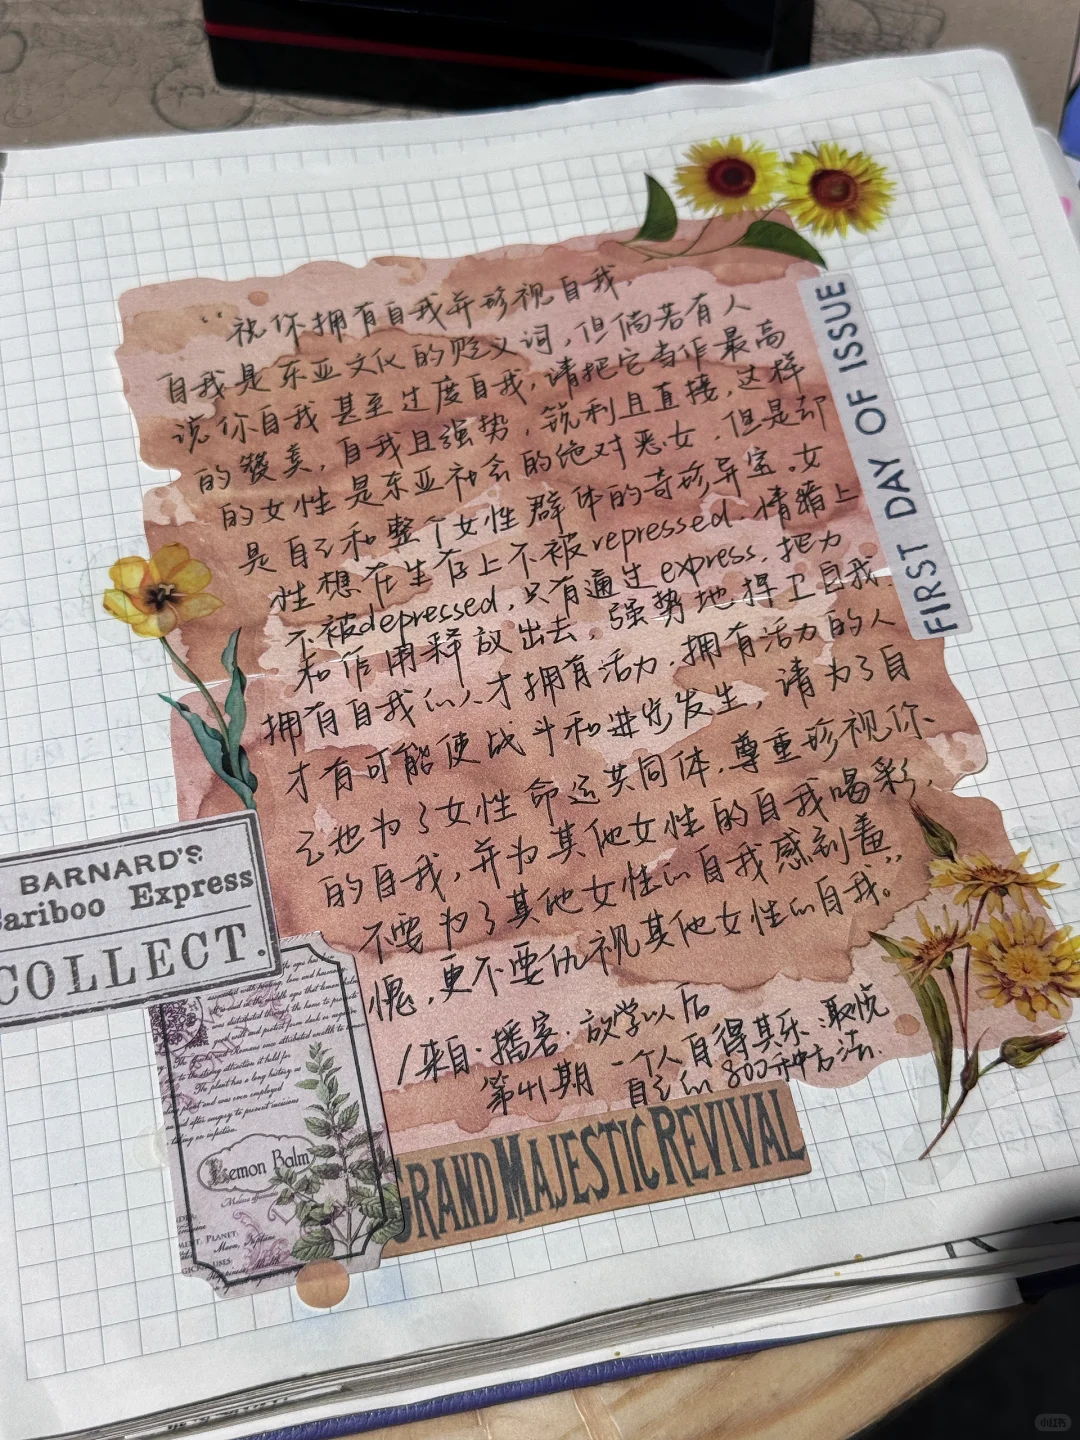 “祝你拥有自我并珍视自我，
自我是东亚文化的贬义词，但倘若有人
说你自我甚至过度自我，请把它当作最高
的褒美，自我且强势，锐利且直接，这样
的女性是东亚社会的绝对恶女，但是却
是自己和整个女性群体的奇珍异宝。女
性想在生存上不被repressed 情绪上
不被depressed，只有通过express，把力
和作用释放出去，强势地捍卫自我
拥有自我的人才拥有活力，拥有活力的人
才有可能使战斗和进步发生，请为了自
己也为了女性命运共同体，尊重珍视你
的自我，并为其他女性的自我喝彩，
不要为了其他女性的自我感到羞
愧，更不要仇视其他女性的自我。”
/来自·播客·放学以后
第41期 一个人自得其乐:取悦
自己的800种方法.
FIRST DAY OF ISSUE
BARNARD'S
Cariboo Express
COLLECT.
Lemon Balm
GRAND MAJESTIC REVIVAL
小红书